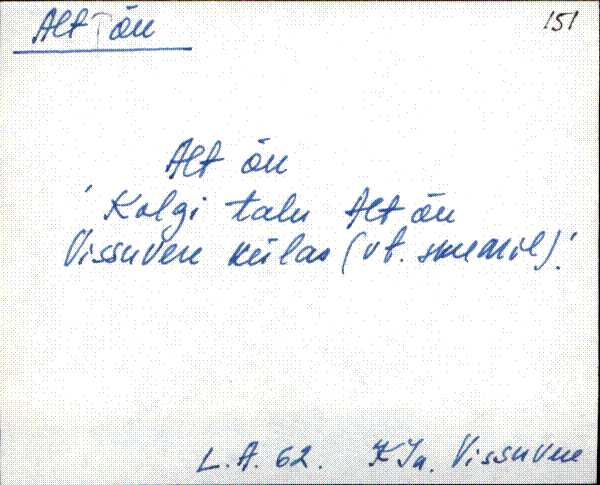 Alt õu
151
Alt õu
'Kolgi talu Alt õu
Vissuvere külas (vt. skeemil).'
L.A. 62. KJn. Vissuvere